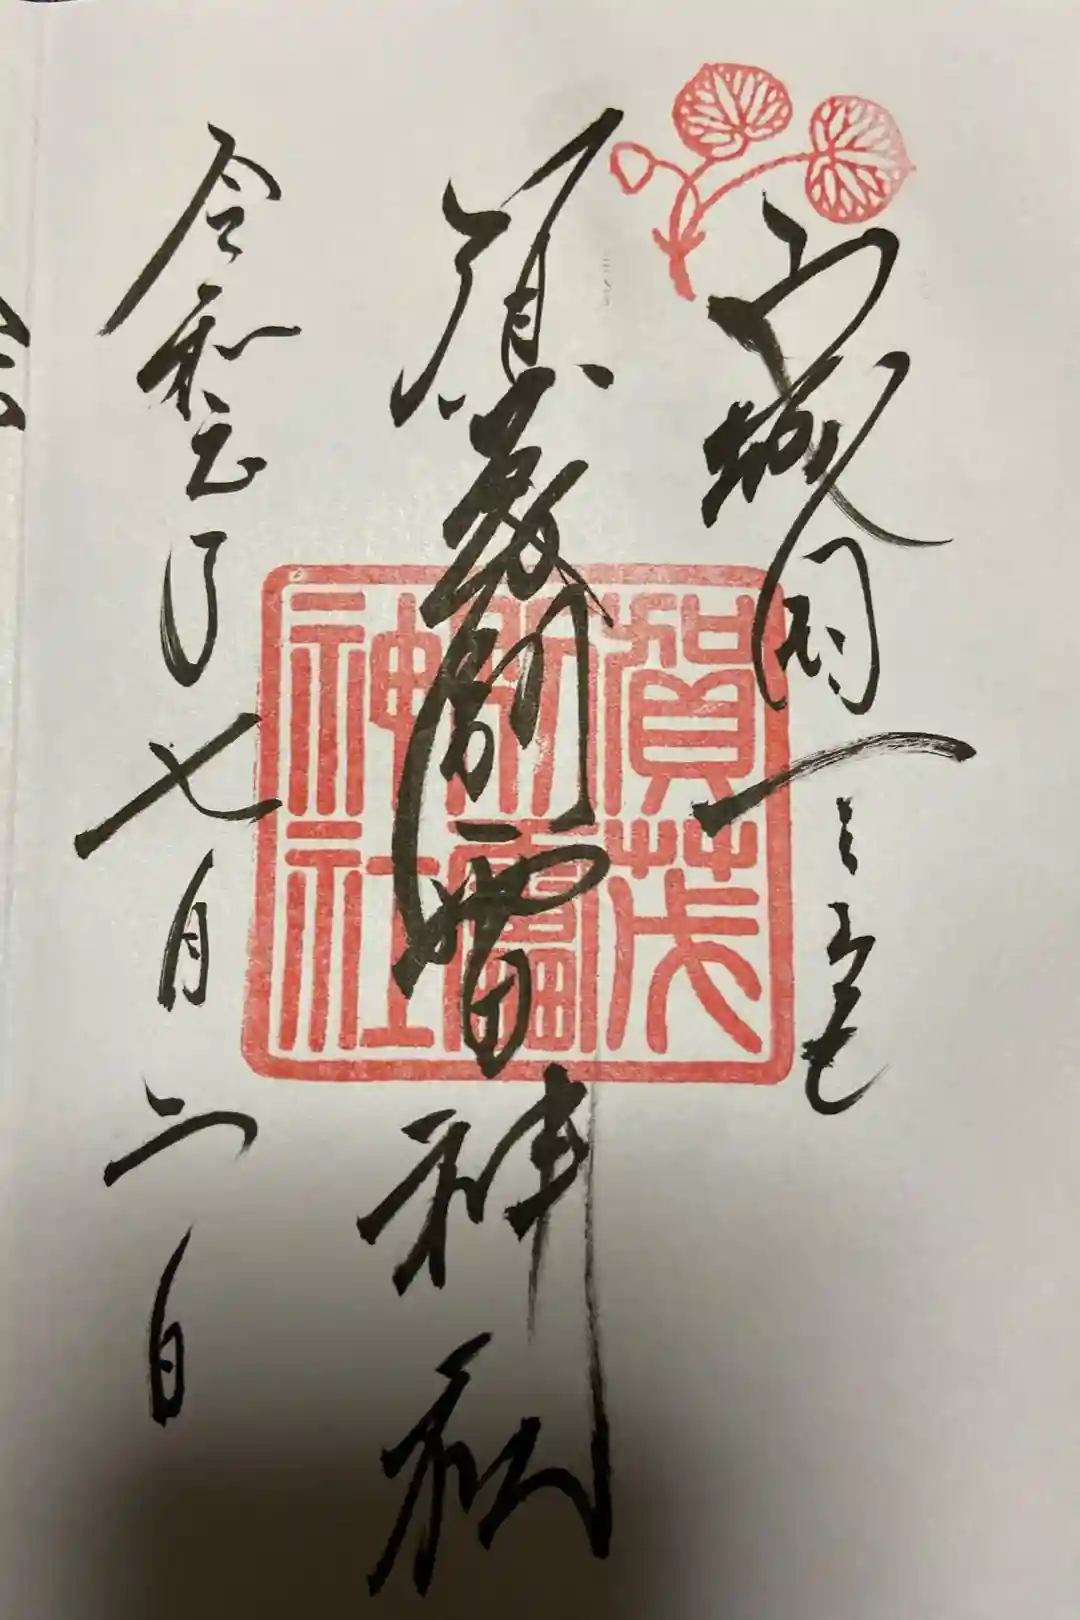 山城国一之宮
賀茂別雷神社
賀茂
別雷
神社
令和五年七月二日